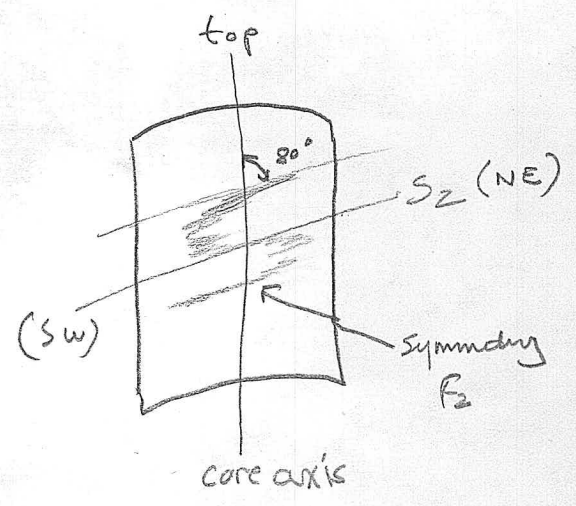 top
80°
S2 (NE)
(SW)
Symmetry
F2
core axis